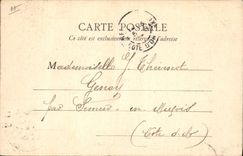 CARTE POSTALE
Ce côté est exclusivement réservé à l'adresse
CÔTE D'OR
Mademoiselle G. Thevenot
Genay
par Semur en Auxois
Côte d'Or